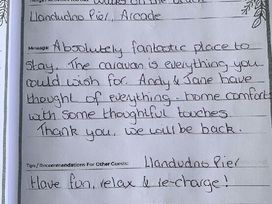 walks on the beach
Llandudno Pier, Arcade
Message: Absolutely fantastic place to
stay. The caravan is everything you
could wish for. Andy & Jane have
thought of everything. home comforts
with some thoughtful touches.
Thank you, we will be back.
Tips / Recommendations For Other Guests: Llandudno Pier
Have fun, relax & re-charge!